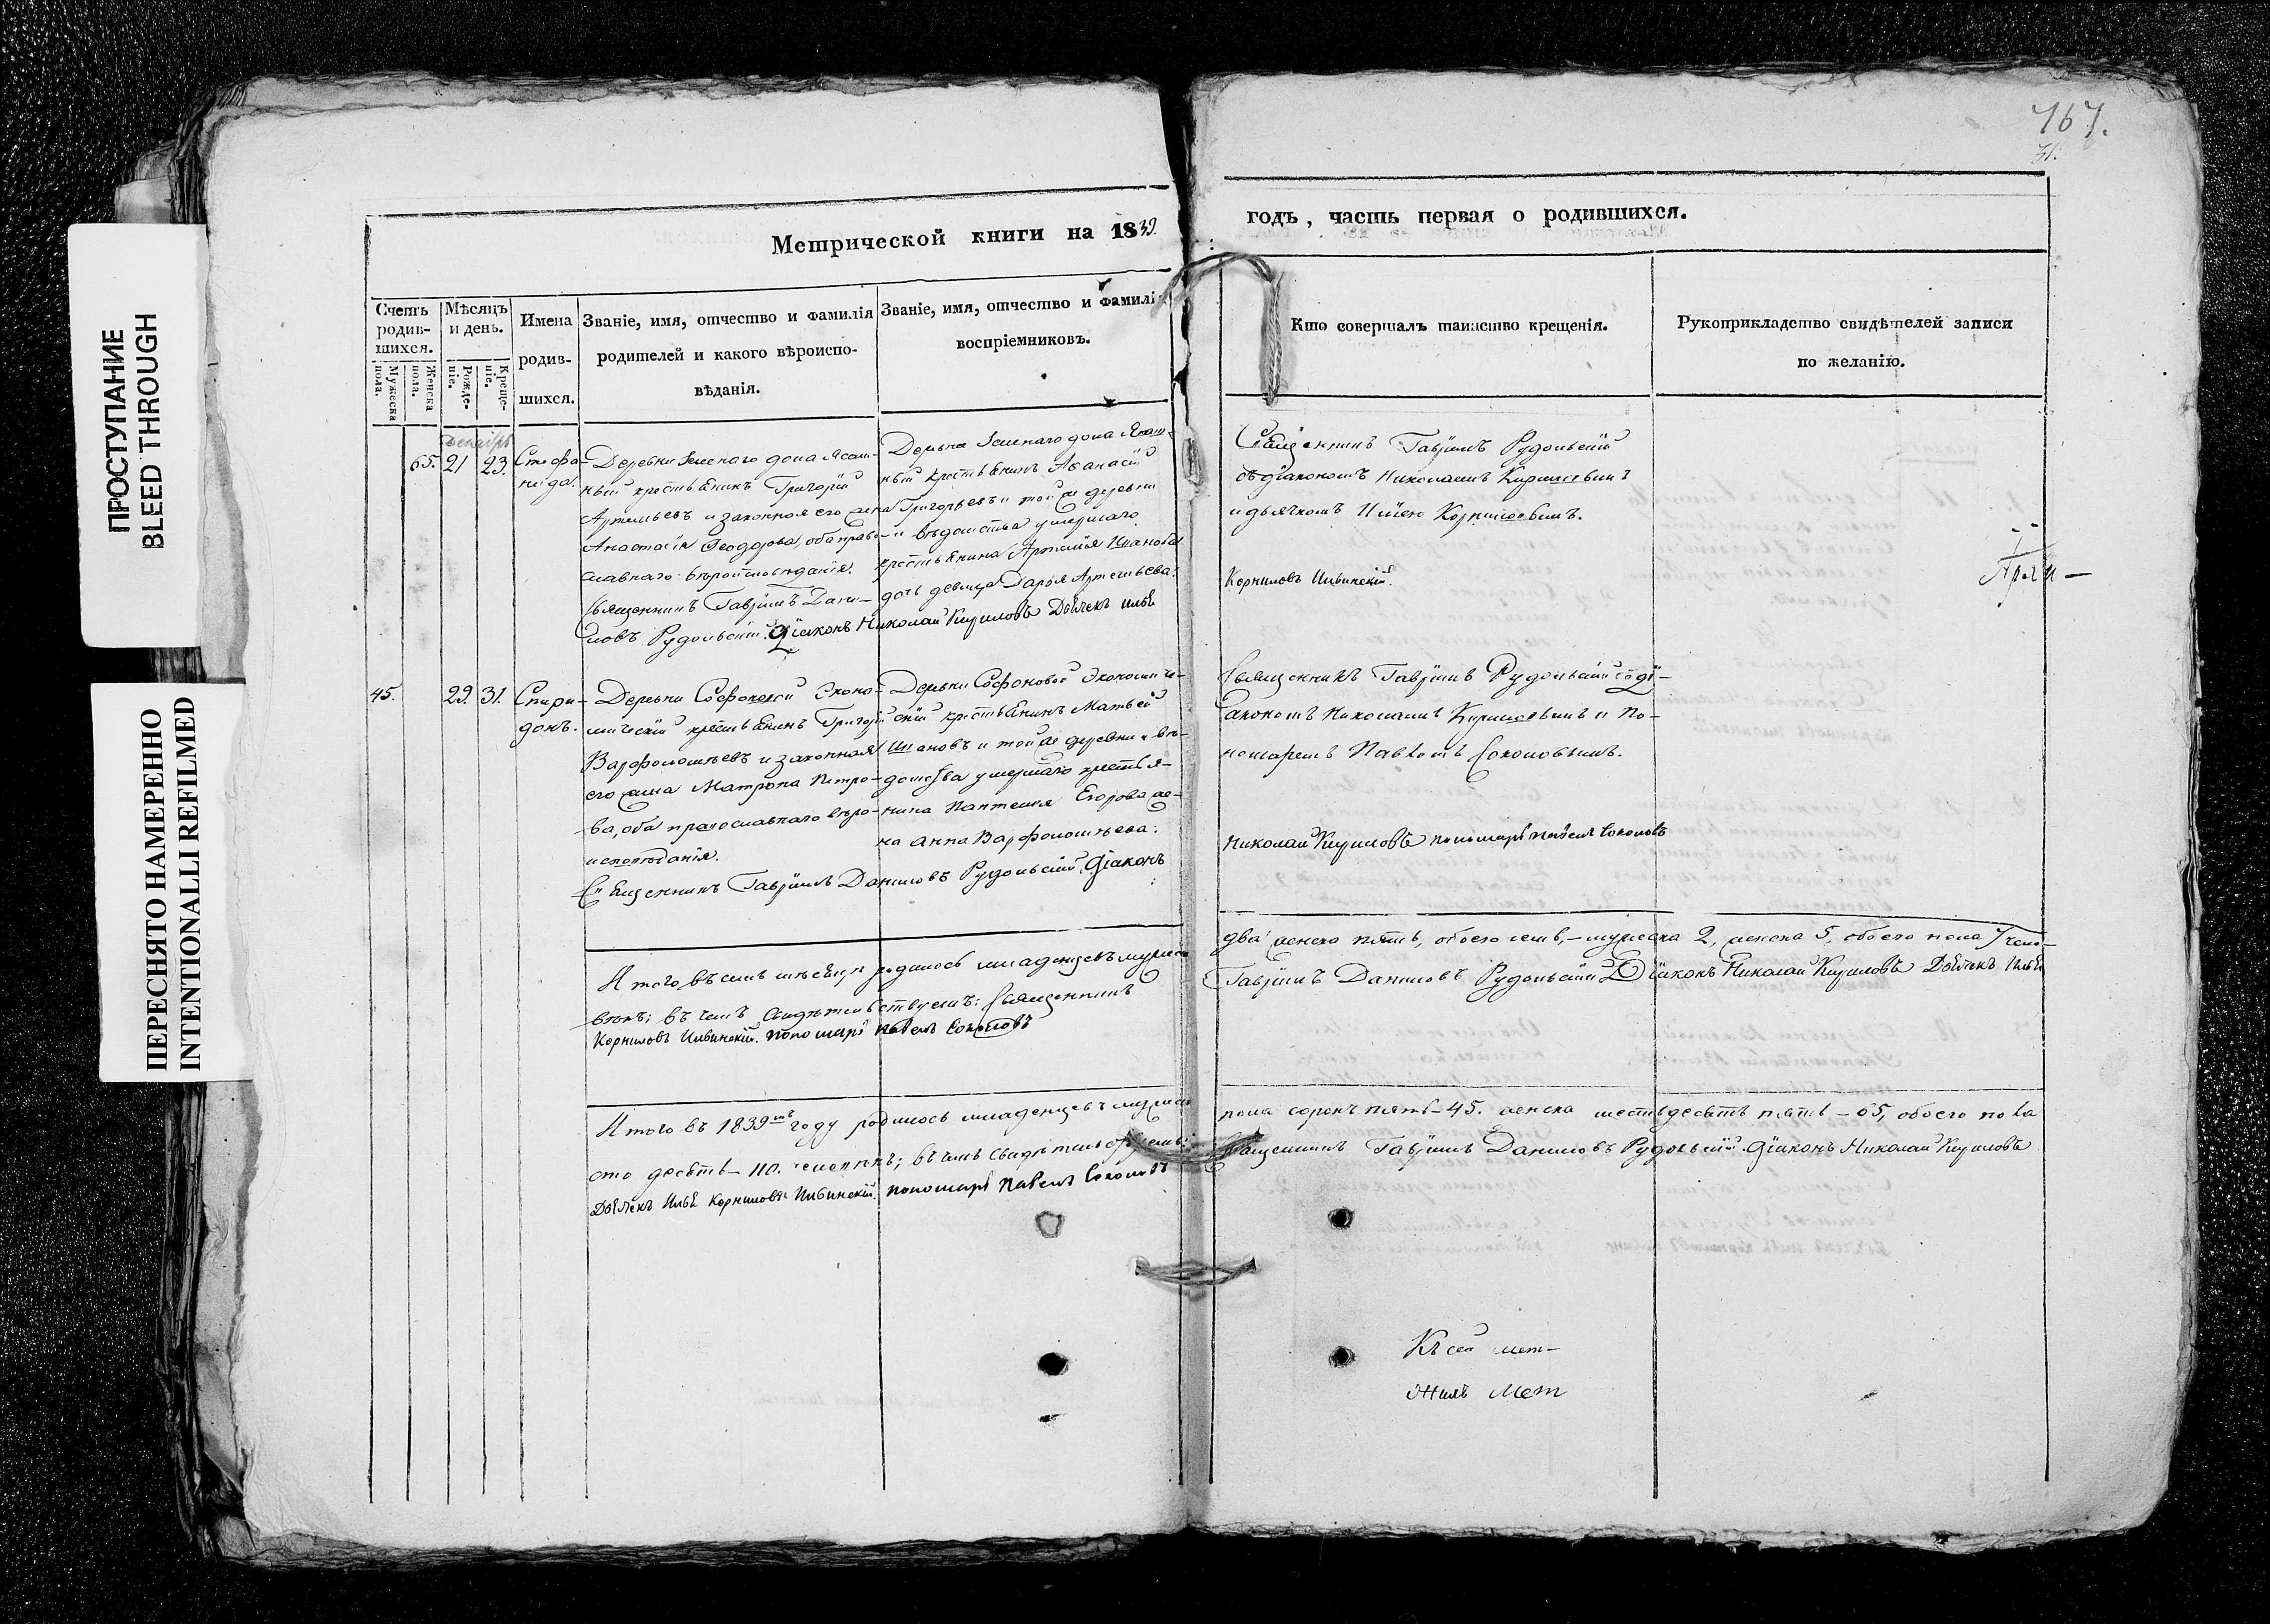 ПРОСТУПАНИЕ
BLEED THROUGH
ПЕРЕСНЯТО НАМЕРЕННО
INTENTIONALLI REFILMED
767.
31.
Метрической книги на 1839.
годъ, часть первая о родившихся.
Счетъ родив-шихся.
Мужеска пола.
Женска пола.
Мѣсяцъ и день.
Рожде-нiе.
Креще-нiе.
Имена
родив-
шихся.
Званiе, имя, отчество и фамилiя
родителей и какого вѣроиспо-
вѣданiя.
Званiе, имя, отчество и фамилiя
воспрiемниковъ.
Кто совершалъ таинство крещенiя.
Рукоприкладство свидѣтелей записи
по желанiю.
Декабрь
65. 21 23.
Стефа-
нида.
Деревни Зеленаго дола Ясаш-
ный крестьянинъ Григорiй
Артемьевъ и законная его жена
Анастасiя Ѳеодорова, оба право-
славнаго вѣроисповѣданiя.
Священникъ Гаврiилъ Дани-
ловъ Рудольскiй. Дiаконъ Николай Кириловъ Дьячекъ Илья
Деревни Зеленаго дола Ясаш-
ный крестьянинъ Аѳанасiй
Григорьевъ и той же деревни
и вѣдомства умершаго
крестьянина Артемiя Иванова
дочь девица Дарья Артемьева.
Священникъ Гаврiилъ Рудольскiй
съ дiакономъ Николаемъ Кириловымъ
и дьячкомъ Ильею Корниловымъ.
Корниловъ Ильинскiй.
45. 29. 31.
Спири-
донъ.
Деревни Софоновой Эконо-
мическiй крестьянинъ Григорiй
Варфоломѣевъ и законная
его жена Матрона Петро-
ва, оба православнаго вѣро-
исповѣданiя.
Священникъ Гаврiилъ Даниловъ Рудольскiй Дiаконъ
Деревни Софоновой Экономиче-
скiй крестьянинъ Матвей
Ивановъ и той же деревни и вѣ-
домства умершаго крестья-
нина Пантелея Егорова же-
на Анна Варфоломѣева.
Священникъ Гаврiилъ Рудольскiй съ дi-
акономъ Николаемъ Кириловымъ и По-
номаремъ Павломъ Соколовымъ.
Николай Кириловъ пономарь Павелъ Соколовъ
Итого въ семъ мѣсяцѣ родилось младенцевъ мужеска
два женска пять, обоего семь, – мужеска 2, женска 5, обоего пола 7 чело-
вѣкъ; въ чемъ свидѣтельствуемъ: Священникъ
Гаврiилъ Даниловъ Рудольскiй Дiаконъ Николай Кириловъ Дьячекъ Илья
Корниловъ Ильинскiй. пономарь Павелъ Соколовъ
Итого въ 1839мъ году родилось младенцевъ мужеска
пола сорокъ пять – 45. женска шестьдесятъ пять – 65, обоего пола
сто десять – 110. человѣкъ; въ чемъ свидѣтельствуемъ:
Священникъ Гаврiилъ Даниловъ Рудольскiй Дiаконъ Николай Кириловъ
Дьячекъ Илья Корниловъ Ильинскiй. пономарь Павелъ Соколовъ
Къ сей мет-